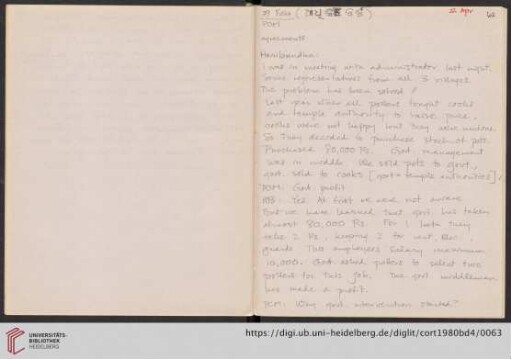 22 Apr
62
Haribandhu:
I was in meeting with administrator last night.
Some representatives from all 3 villages.
The problem has been solved!
Last year when all potters fought cooks
and temple authority to raise price,
cooks were not happy but they were
So they decided to purchase stock of pots.
Purchased 80,000 Rs. Govt. management
was in middle. We sold pots to govt,
govt. sold to cooks [govt = temple authorities]
DCM: Govt. profit
HB: Yes. At first we were not aware
But we have learned that govt. has taken
almost 80,000 Rs. For 1
take 2 Rs, keeping 2 for rent,
guards. This employees salary maximum
10,000. Govt. asked potters to select two
potters for this job. The govt. middleman
has made a profit.
DCM: Why govt. intervention started?
UNIVERSITÄTS-
BIBLIOTHEK
HEIDELBERG
https://digi.ub.uni-heidelberg.de/diglit/cort1980bd4/0063